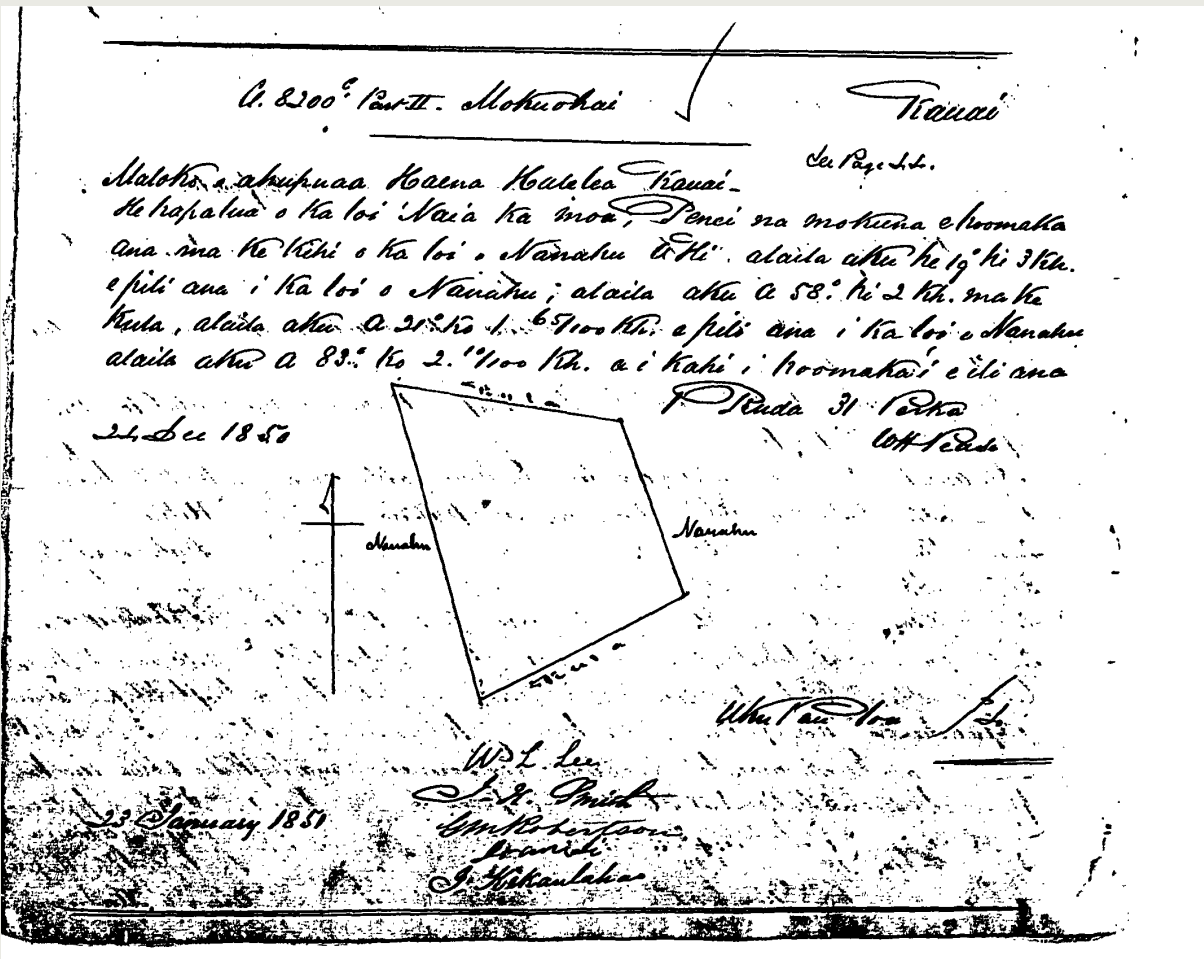 A. 8200ᶜ Part II. Mokuohai
Kauai
See Page
Maloko o ahupuaa Haena Halelea Kauai-
He kapalua o ka loi Naia ka moa, Penei na mokuna e hoomaka
ana ma ke kihi o ka loi o Nanahu A Hi. alaila aku he 19° hi 3 Kh.
e pili ana i ka loi o Nanahu; alaila aku A 58° hi 2 Kh. ma ke
kula, alaila aku A 21° ko 1. 65/100 Kh. e pili ana i ka loi o Nanahu
alaila aku A 83° ko 2. 10/100 Kh. a i kahi i hoomaka'i e ili ana
Ruda 31 Perka
WH Pease
Dec 1850
Nanahu
Nanahu
Uku
W. L. Lee
J. H. Smith
GM Robertson
J. Kekaulahao
23 January 1851